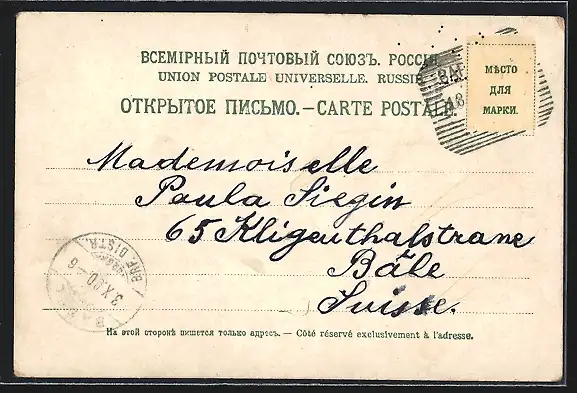 ВСЕМІРНЫЙ ПОЧТОВЫЙ СОЮЗЪ. РОССІЯ
UNION POSTALE UNIVERSELLE. RUSSIE
ОТКРЫТОЕ ПИСЬМО.—CARTE POSTALE.
МѢСТО
ДЛЯ
МАРКИ.
Mademoiselle
Paula Siegin
65 Kligenthalstrane
Bâle
Suisse.
BRF. DISTR.
3.X.00—6
На этой сторонѣ пишется только адресъ. — Côté réservé exclusivement à l'adresse.